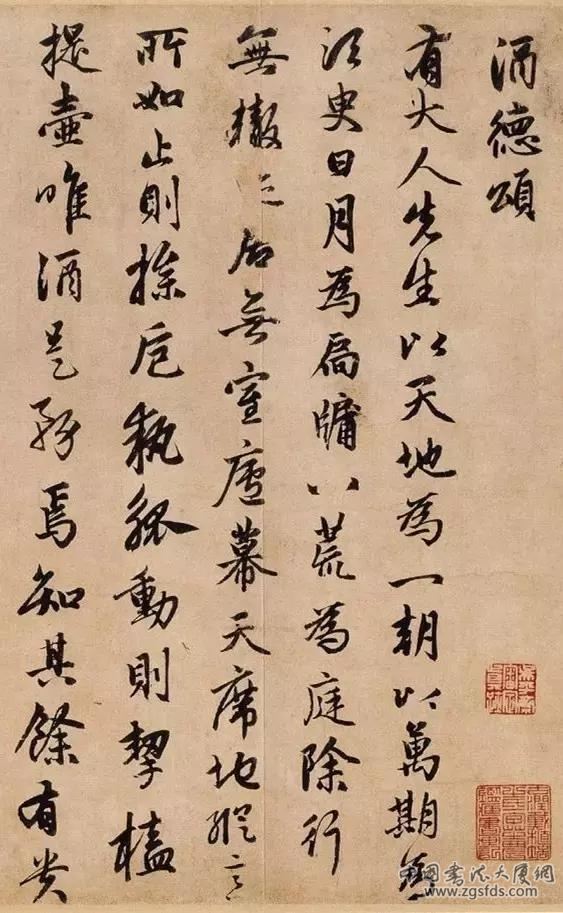 酒德頌
有大人先生以天地為一朝以萬期為
須臾日月為扃牖八荒為庭除行
無轍迹居無室廬幕天席地縱意
所如止則操巵執觚動則挈榼
提壺唯酒是務焉知其餘有貴
中国書法大厦網
www.zgsfds.com